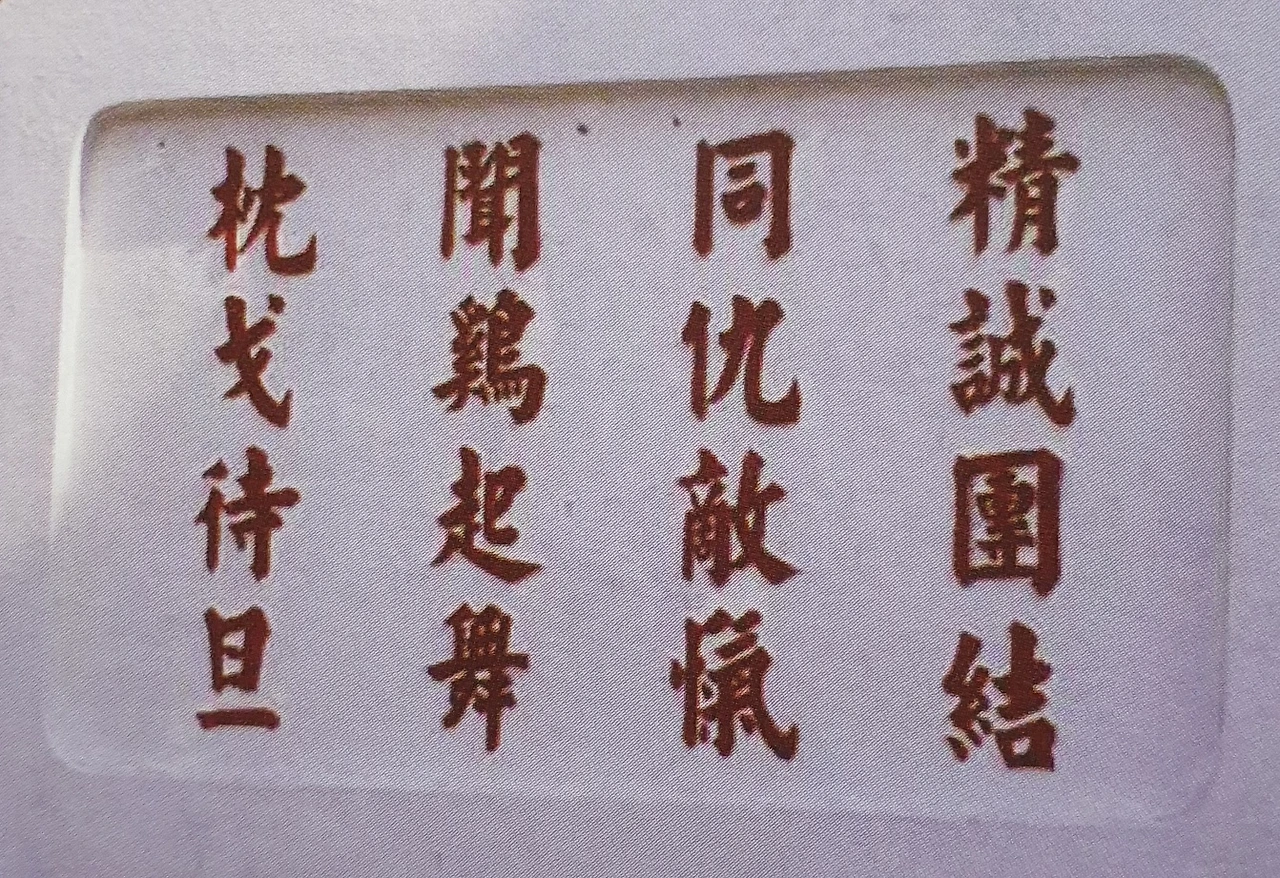 精誠團結
同仇敵愾
聞鷄起舞
枕戈待旦